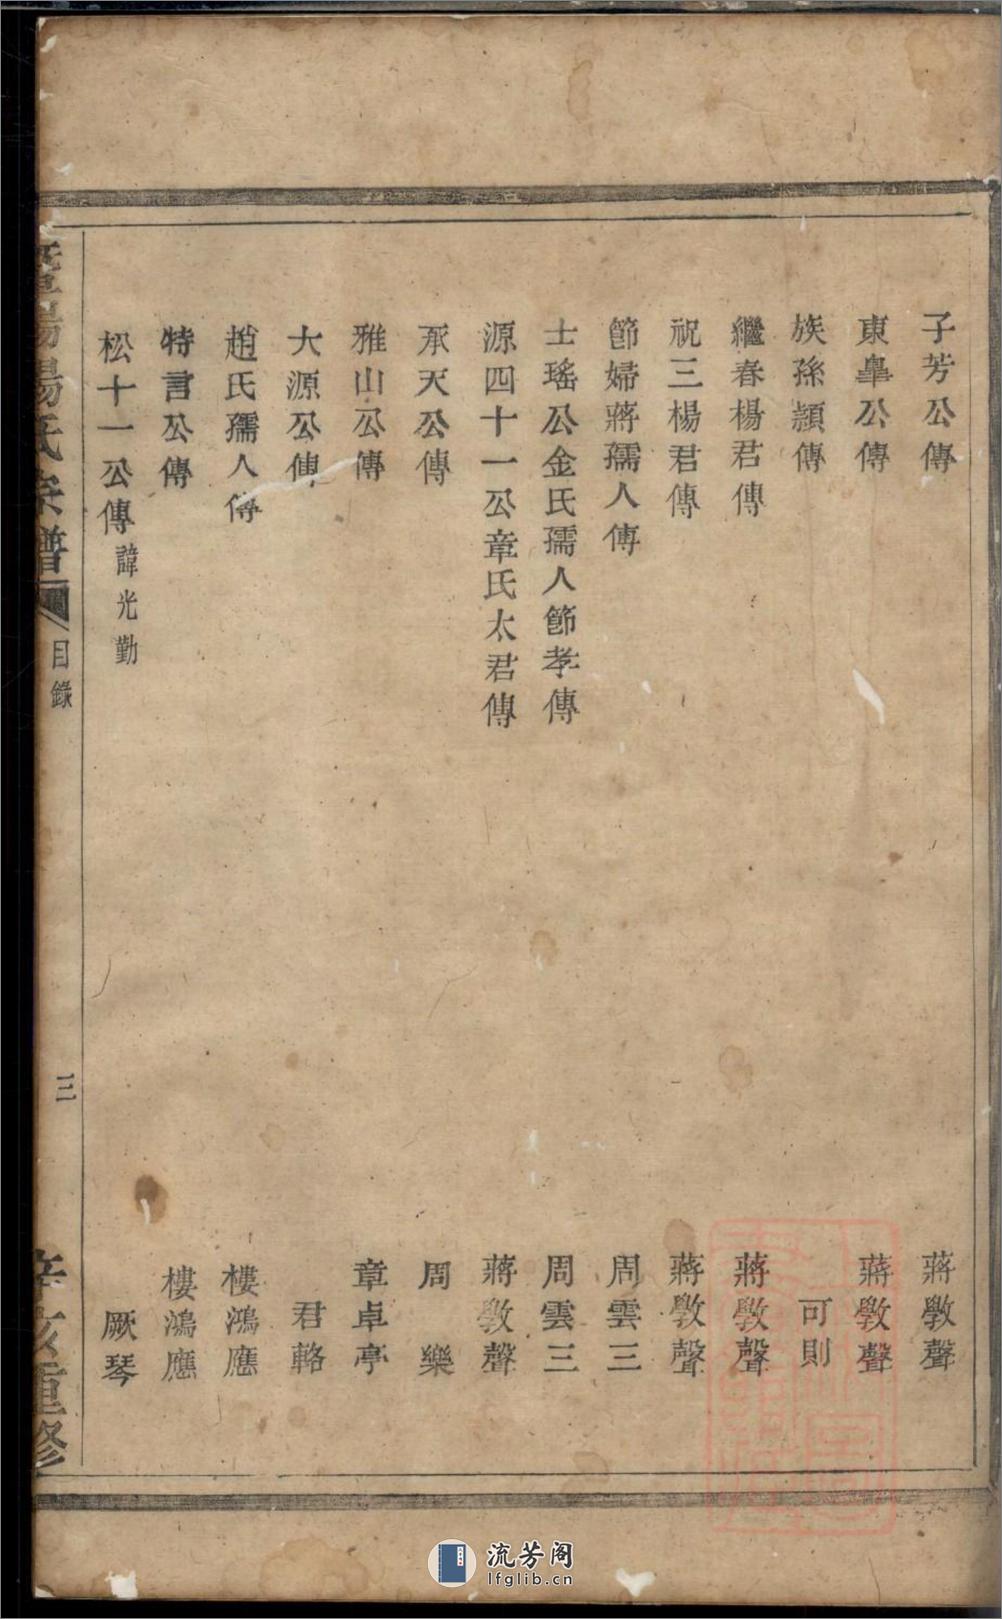 子芳公傳 蔣斆聲
東臯公傳 蔣斆聲
族孫頴傳 可則
繼春楊君傳 蔣斆聲
祝三楊君傳 蔣斆聲
節婦蔣孺人傳 周雲三
士瑤公金氏孺人節孝傳 周雲三
源四十一公章氏太君傳 蔣斆聲
承天公傳 周樂
雅山公傳 章卓亭
大源公傳 君輅
趙氏孺人傳 樓鴻應
特言公傳 樓鴻應
松十一公傳 諱光勤 厥琴
暨陽楊氏宗譜 目錄 三 辛亥重修
流芳阁
lfglib.cn